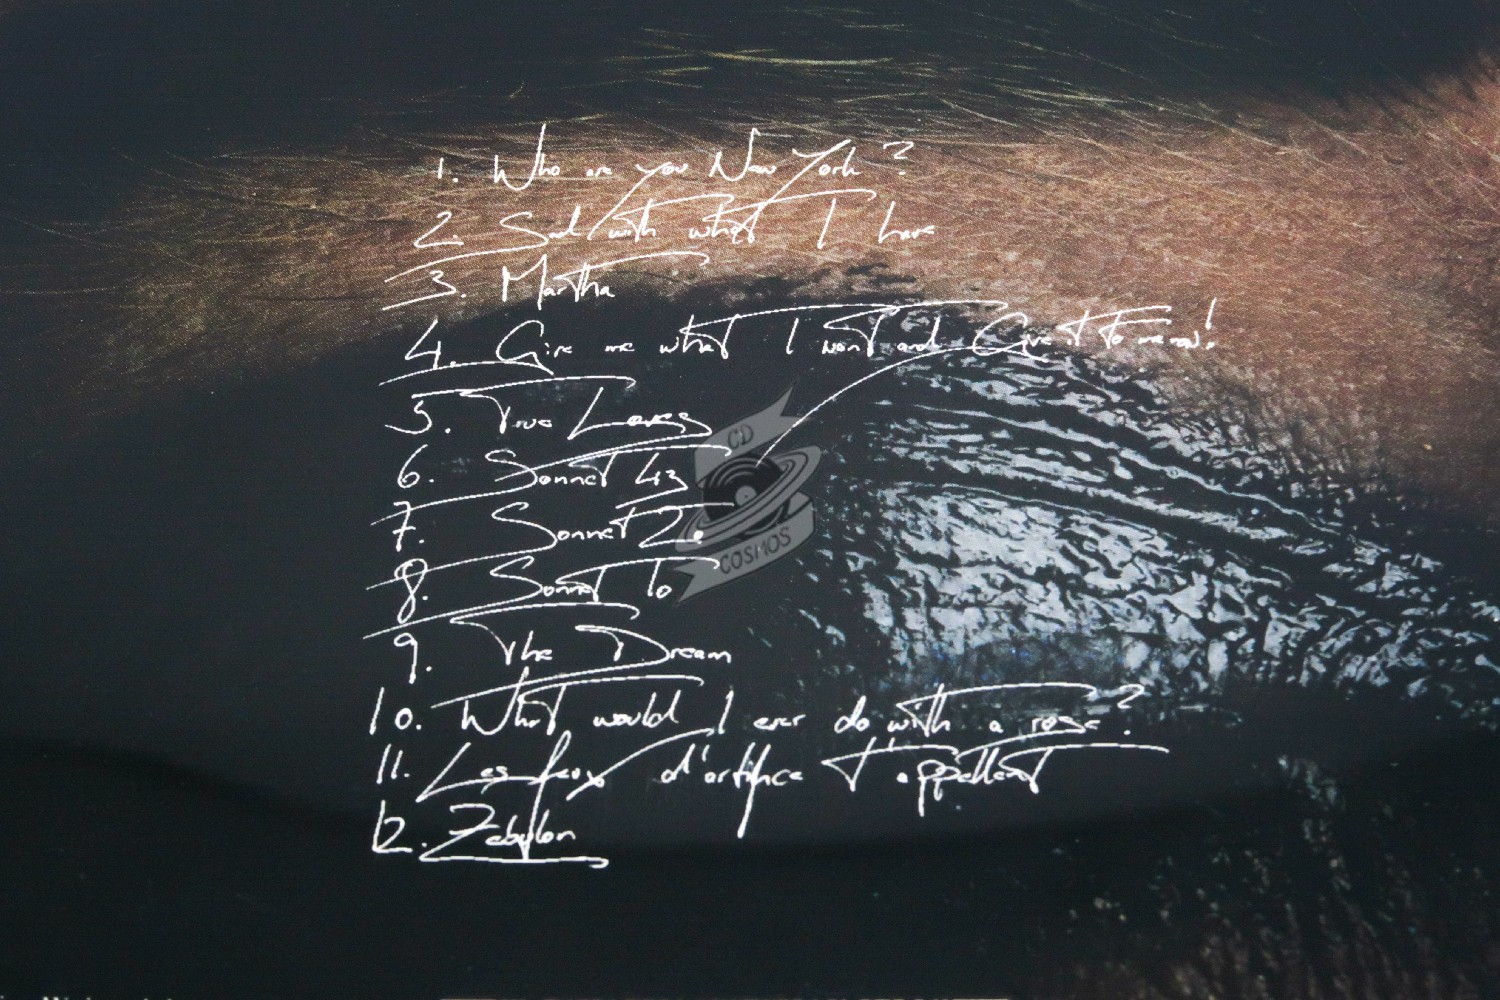 1. Who are you New York?
2. Sad with what I have
3. Martha
4. Give me what I want and Give it to me now!
5. True Loves
6. Sonnet 43
7. Sonnet 20
8. Sonnet 10
9. The Dream
10. What would I ever do with a rose?
11. Les feux d'artifice t'appellent
12. Zebulon
CD
COSMOS